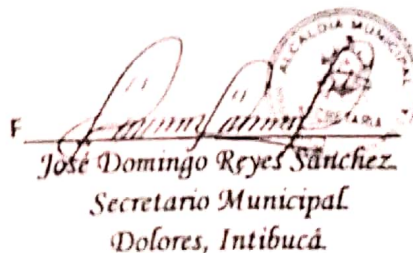 ALCALDIA MUNICIPAL
F
José Domingo Reyes Sánchez
Secretario Municipal
Dolores, Intibucá